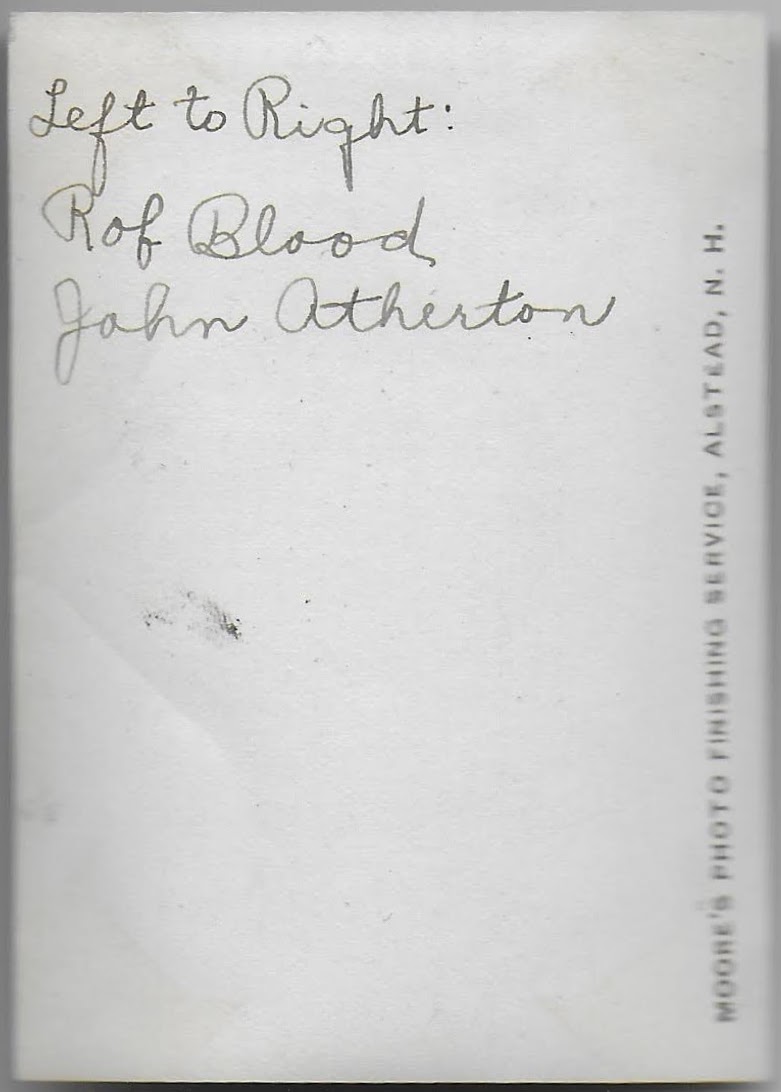 Left to Right:
Rof Blood
John Atherton
MOORE'S PHOTO FINISHING SERVICE, ALSTEAD, N. H.